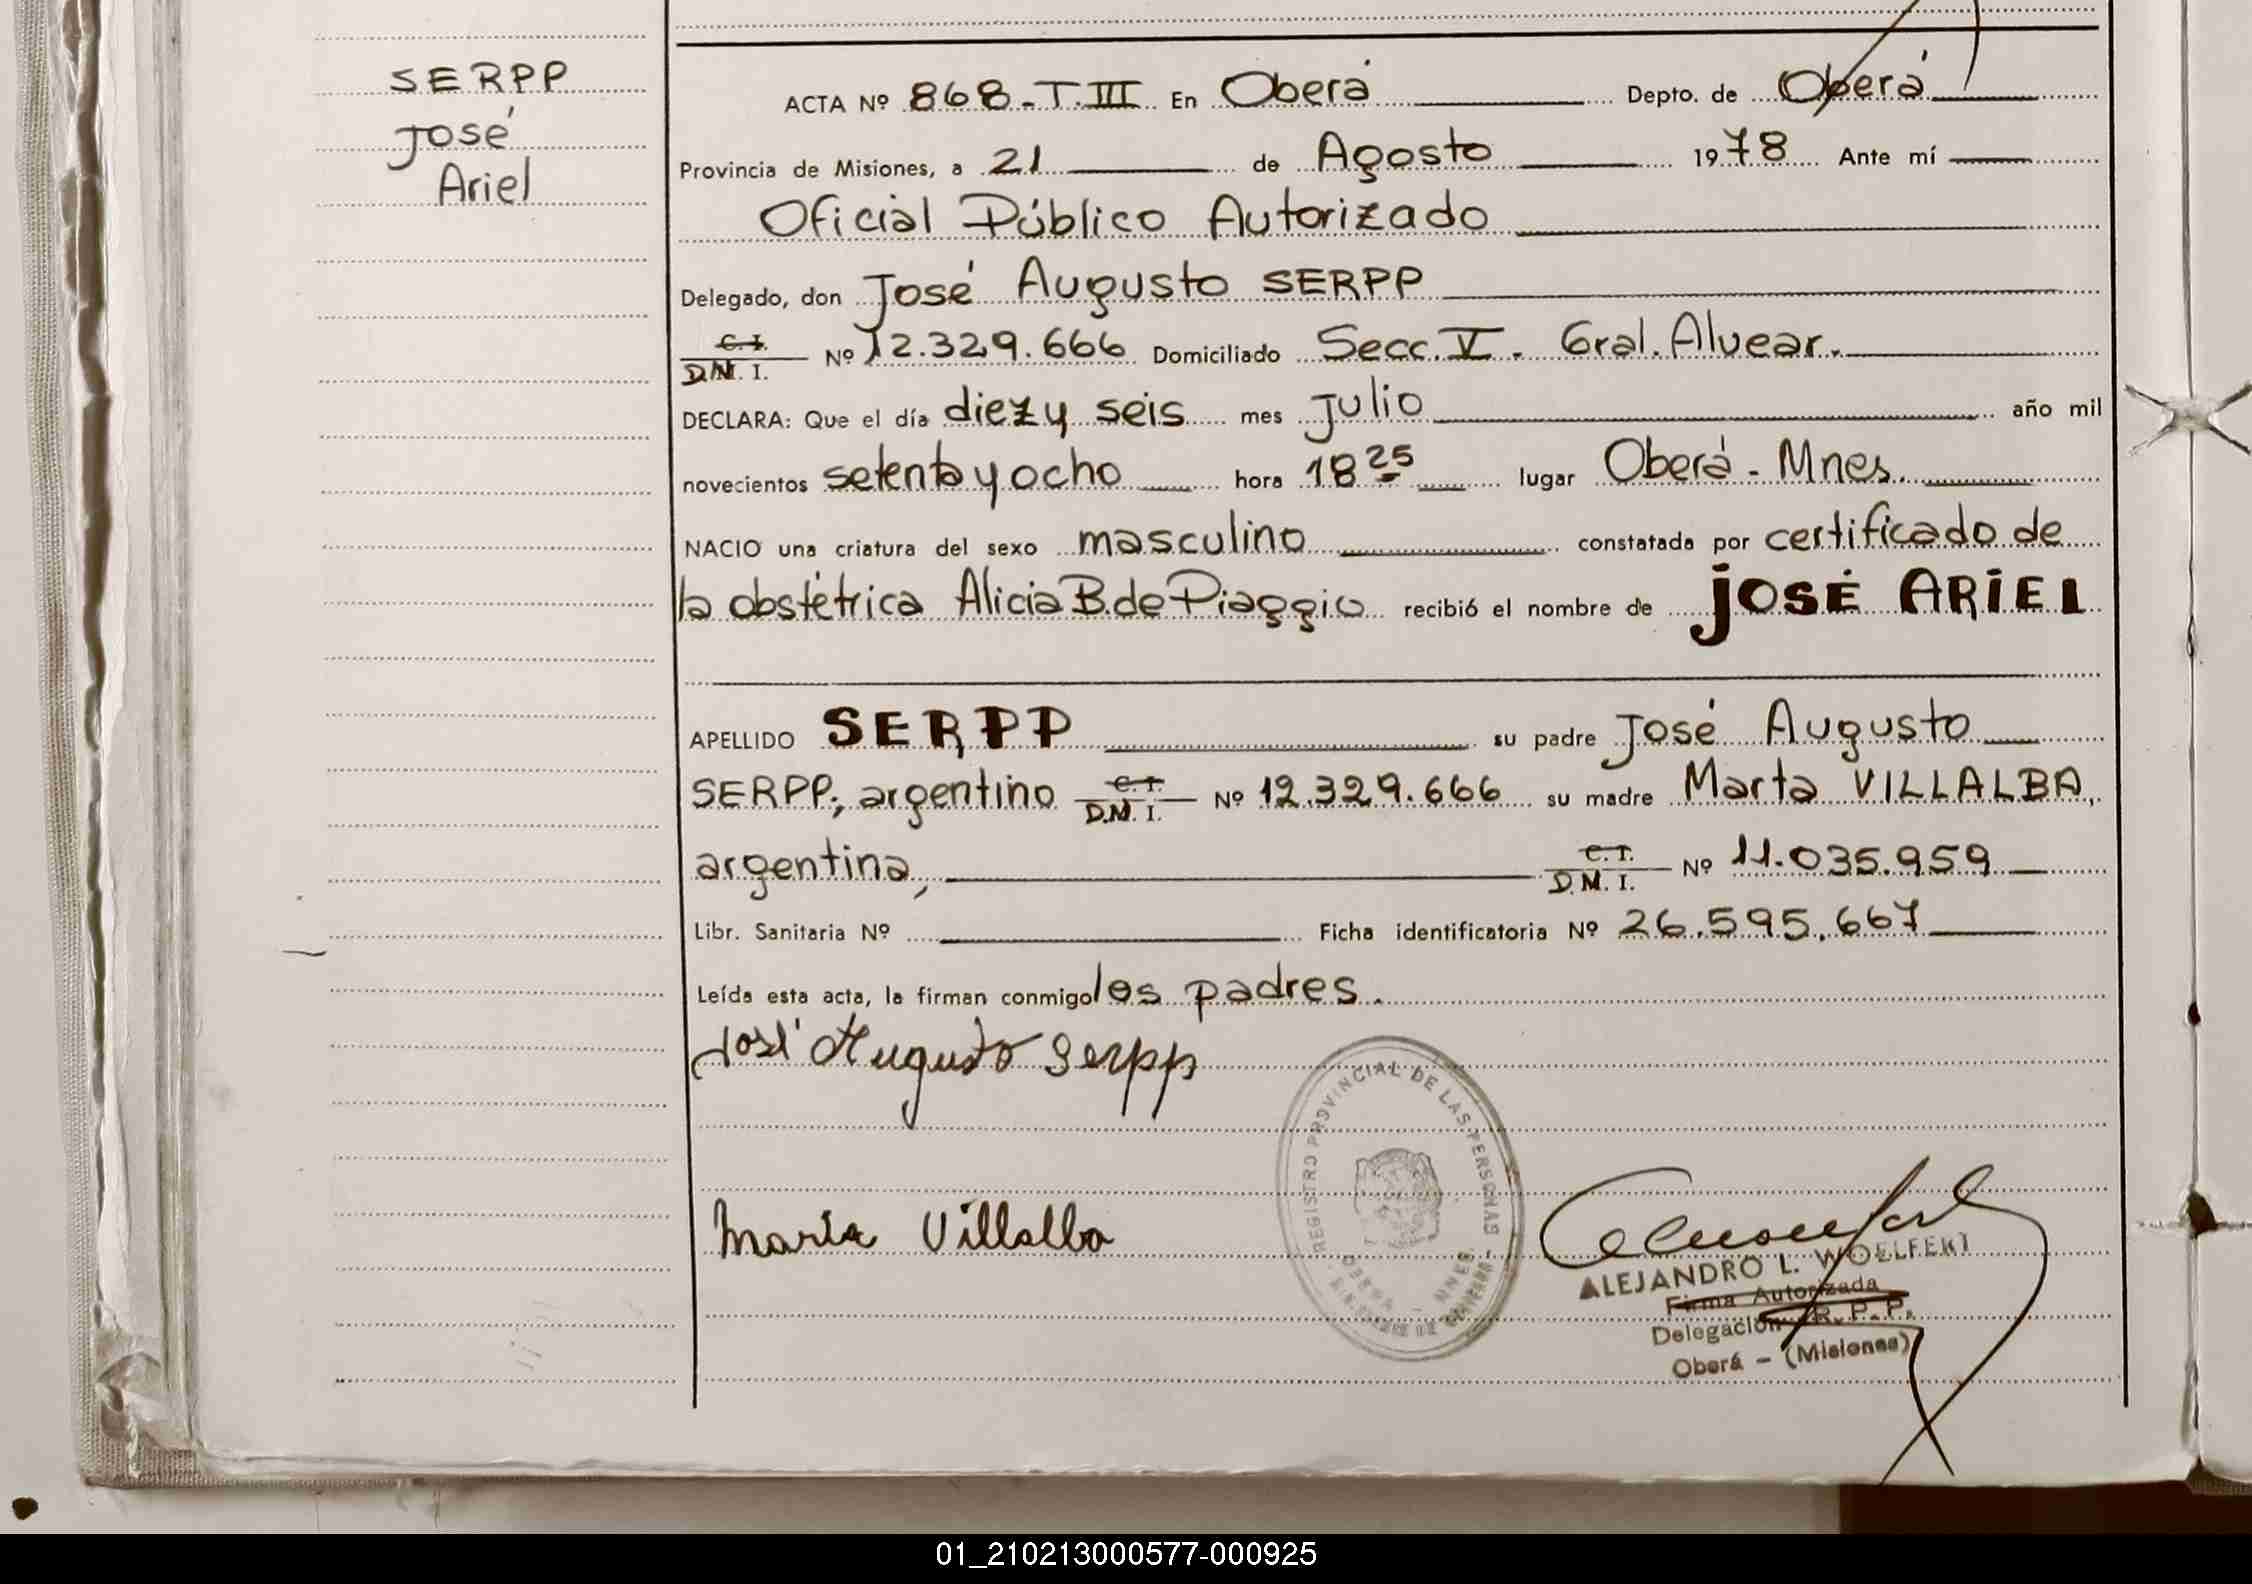 SERPP
José
Ariel
ACTA Nº 868-T.III En Oberá Depto. de Oberá
Provincia de Misiones, a 21 de Agosto 1978 Ante mí
Oficial Público Autorizado
Delegado, don José Augusto SERPP
C.I.
D.N.I. Nº 12.329.666 Domiciliado Secc. V. Gral. Alvear.
DECLARA: Que el día diez y seis mes julio año mil
novecientos setenta y ocho hora 18 25 lugar Oberá - Mnes.
NACIO una criatura del sexo masculino constatada por certificado de
la obstétrica Alicia B. de Piaggio recibió el nombre de JOSÉ ARIEL
APELLIDO SERPP su padre José Augusto
SERPP, argentino C.I. D.N.I. Nº 12.329.666 su madre Marta VILLALBA,
argentina, C.I. D.N.I. Nº 11.035.959
Libr. Sanitaria Nº Ficha identificatoria Nº 26.595.667
Leída esta acta, la firman conmigo los padres.
José Augusto Serpp
REGISTRO PROVINCIAL DE LAS PERSONAS
OBERA - MNES.
Marta Villalba
ALEJANDRO L. WOELFERT
Firma Autorizada
Delegación R. P. P.
Oberá - (Misiones)
01_210213000577-000925